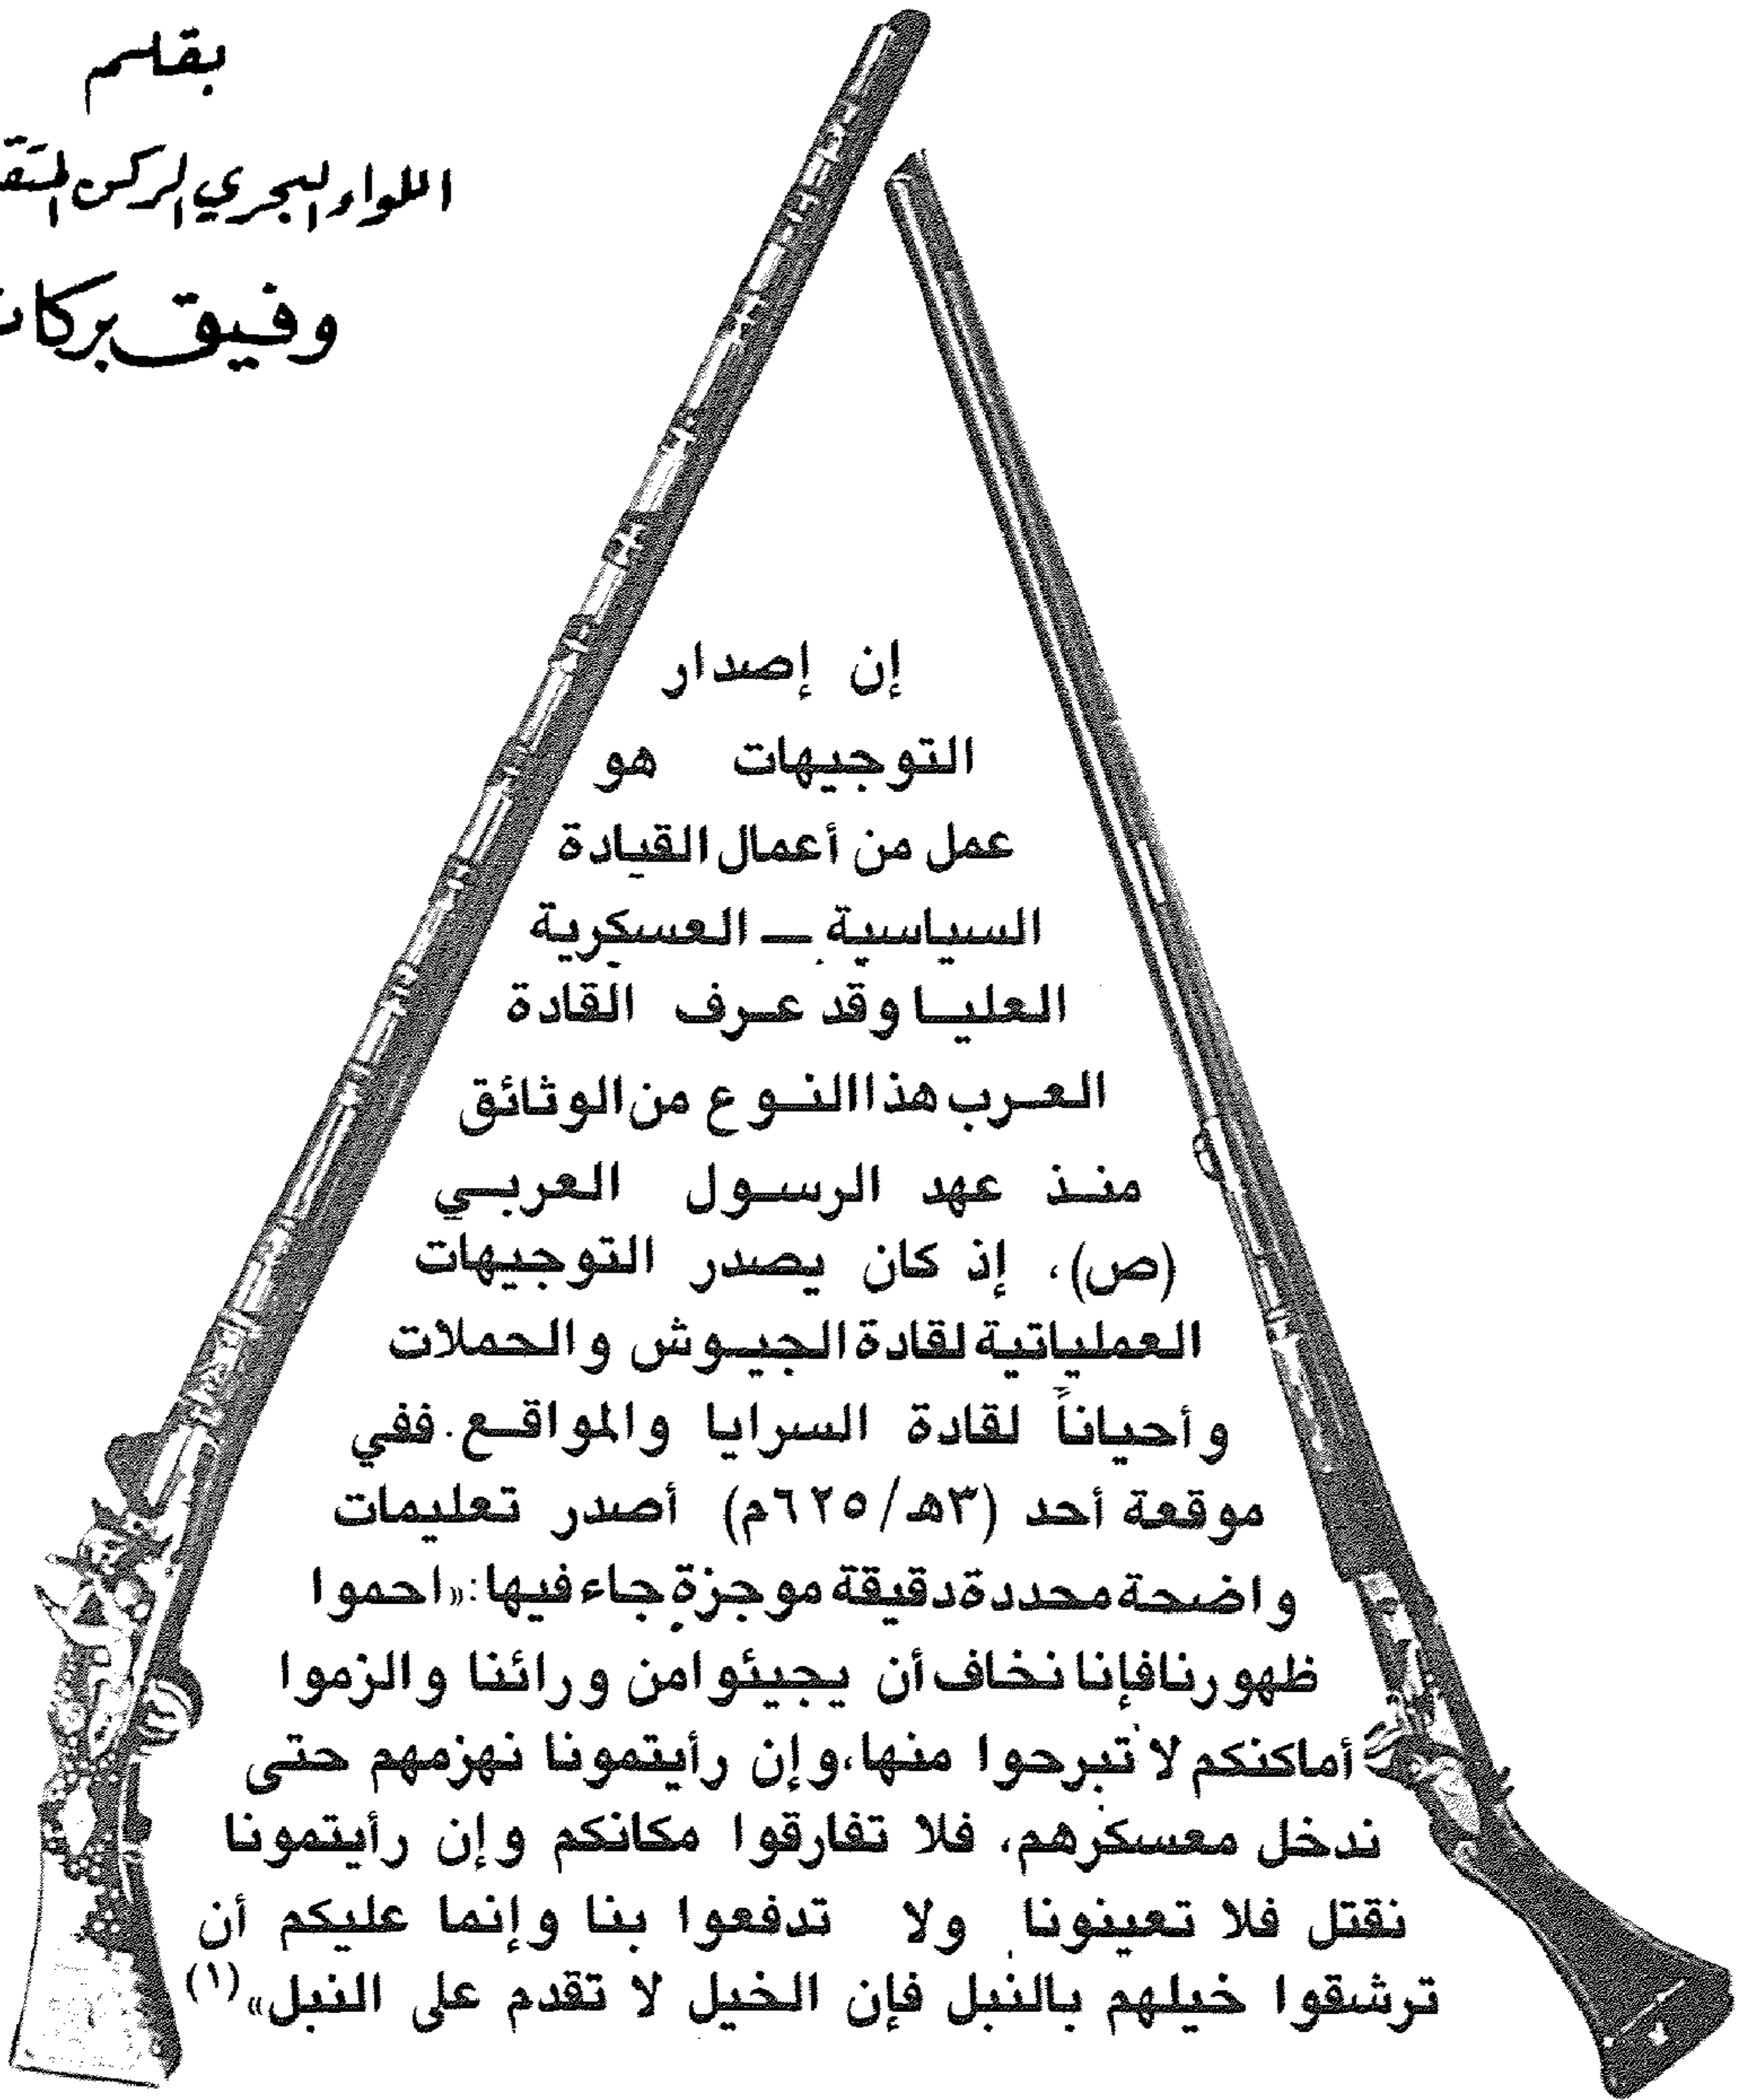 بقلم
اللواء البحري الركن
وفيق
إن إصدار
التوجيهات هو
عمل من أعمال القيادة
السياسية — العسكرية
العليا وقد عرف القادة
العرب هذا النوع من الوثائق
منذ عهد الرسول العربي
(ص)، إذ كان يصدر التوجيهات
العملياتية لقادة الجيوش والحملات
وأحياناً لقادة السرايا والمواقع. ففي
موقعة أحد (٣هـ/٦٢٥م) أصدر تعليمات
واضحة محددة دقيقة موجزة جاء فيها: «احموا
ظهورنا فإنا نخاف أن يجيئوا من ورائنا والزموا
أماكنكم لا تبرحوا منها، وإن رأيتمونا نهزمهم حتى
ندخل معسكرهم، فلا تفارقوا مكانكم وإن رأيتمونا
نقتل فلا تعينونا ولا تدفعوا بنا وإنما عليكم أن
ترشقوا خيلهم بالنبل فإن الخيل لا تقدم على النبل» (١)